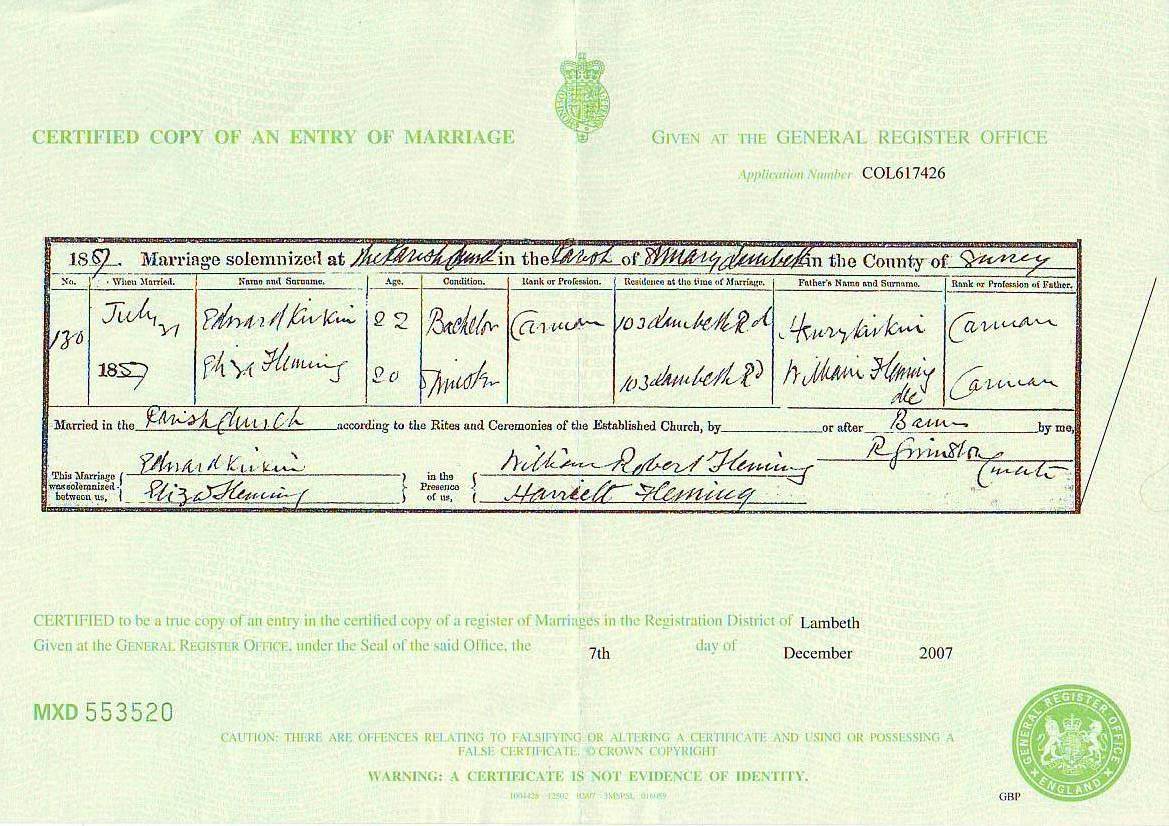 CERTIFIED COPY OF AN ENTRY OF MARRIAGE
GIVEN AT THE GENERAL REGISTER OFFICE
Application Number COL617426
1887. Marriage solemnized at the Parish Church in the Parish of St Mary Lambeth in the County of Surrey
No. When Married. Name and Surname. Age. Condition. Rank or Profession. Residence at the time of Marriage. Father's Name and Surname. Rank or Profession of Father.
130 July 31 Edward Kirkin 22 Bachelor Carman 103 Lambeth Rd Henry Kirkin Carman
1887 Eliza Fleming 20 Spinster 103 Lambeth Rd William Fleming Carman
Married in the Parish Church according to the Rites and Ceremonies of the Established Church, by or after Banns by me,
This Marriage was solemnized between us, Edward Kirkin
Eliza Fleming
in the Presence of us, William Robert Fleming
Harriett Fleming
Curate
CERTIFIED to be a true copy of an entry in the certified copy of a register of Marriages in the Registration District of Lambeth
Given at the GENERAL REGISTER OFFICE, under the Seal of the said Office, the 7th day of December 2007
MXD 553520
CAUTION: THERE ARE OFFENCES RELATING TO FALSIFYING OR ALTERING A CERTIFICATE AND USING OR POSSESSING A
FALSE CERTIFICATE. © CROWN COPYRIGHT
WARNING: A CERTIFICATE IS NOT EVIDENCE OF IDENTITY.
GENERAL REGISTER OFFICE
ENGLAND
GBP